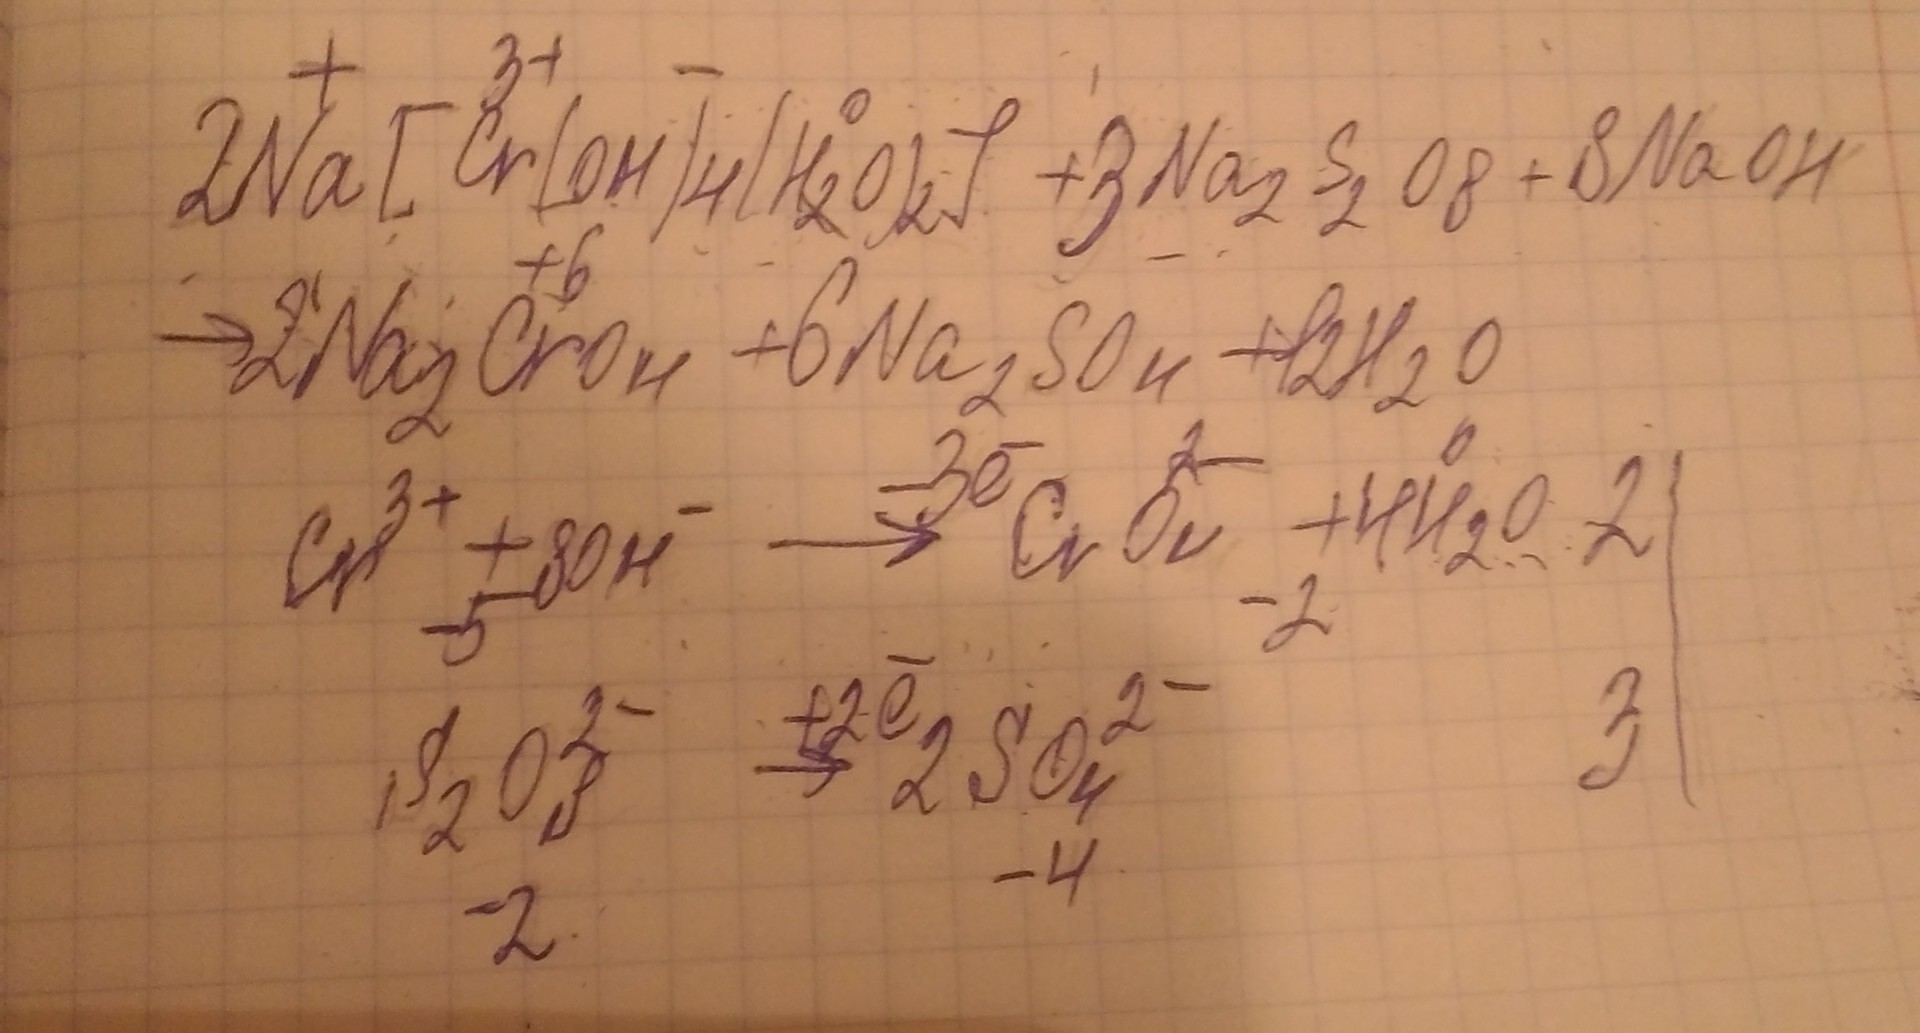 2Na⁺[Cr³⁺(OH)₄⁻(H₂O)₂⁰] + 3Na₂S₂O₈ + 8NaOH
→ 2Na₂Cr⁺⁶O₄ + 6Na₂SO₄ + 12H₂O
Cr³⁺ + 8OH⁻ –3e⁻→ CrO₄²⁻ + 4H₂O⁰ 2
-5 -2
S₂O₈²⁻ +2e⁻→ 2SO₄²⁻ 3
-2 -4